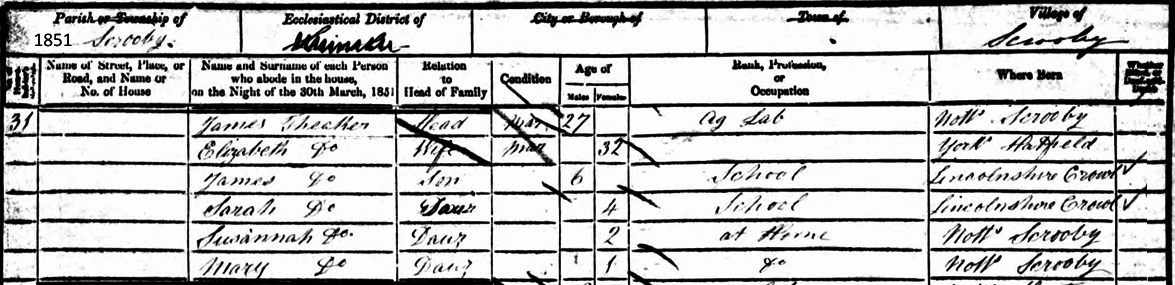 Parish or Township of Ecclesiastical District of City or Borough of Town of Village of
1851 Scrooby. Scrooby
Name of Street, Place, or Road, and Name or No. of House Name and Surname of each Person who abode in the house, on the Night of the 30th March, 1851 Relation to Head of Family Condition Age of Males Females Rank, Profession, or Occupation Where Born
31 James Theaker Head Mar 27 Ag Lab Notts Scrooby
Elizabeth Do Wife Mar 32 York Hatfield
James Do Son 6 School Lincolnshire Crowl
Sarah Do Daur 4 School Lincolnshire Crowl
Susannah Do. Daur 2 at Home Notts Scrooby
Mary Do Daur 1 Do Notts Scrooby